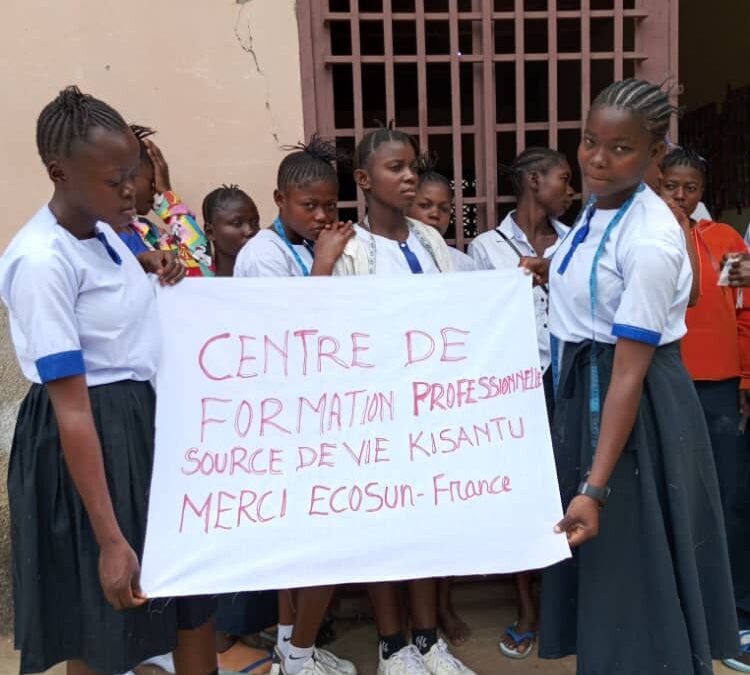 CENTRE DE
FORMATION PROFESSIONNELLE
SOURCE DE VIE KISANTU
MERCI ECOSUN-France